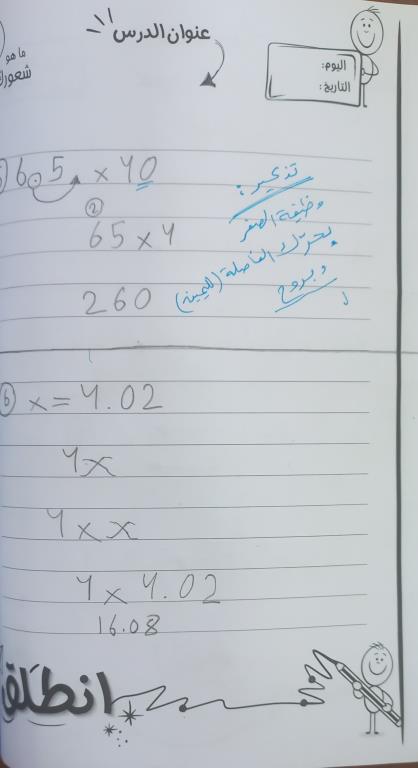 عنوان الدرس
ما هو
شعورك
اليوم:
التاريخ:
6.5 × 40
تذكير:
وظيفة الصفر
يحرّك الفاصلة (لليمين)
ويروح
②
65 × 4
260
⑥ x = 4.02
4x
4 × x
4 × 4.02
16.08
انطلق